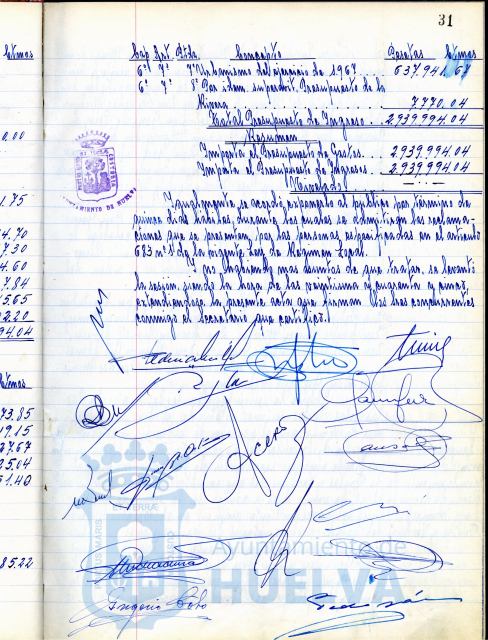 31
Cap Art. Ptda. Concepto Pesetas Ctmos
6º 7º 7º Urbanismo del ejercicio de 1967. 637.941.67
6º 7º 8º Por idem. superávit Presupuesto de la
Ribera 7.770.04
Total Presupuesto de Ingreso 2.939.994.04
Resumen
Importa el Presupuesto de Gastos 2.939.994.04
Importa el Presupuesto de Ingresos 2.939.994.04
Nivelado
Igualmente se acordó exponerlo al público por término de
quince días hábiles, durante los cuales se admitirán las reclama-
ciones que se presenten por las personas especificadas en el artículo
683 nº 1 de la vigente Ley de Régimen Local.
No habiendo mas asuntos de que tratar, se levantó
la sesión, siendo la hora de las veintiuna y cuarenta y cinco,
extendiéndose la presente acta que firman los tres concurrentes
conmigo el Secretario que certifico.
Ctmos
0.00
1.75
4.70
7.30
4.60
7.84
5.65
2.20
94.04
Ctmos
73.85
19.15
27.67
25.04
51.40
85.22
AYUNTAMIENTO DE HUELVA
Ayuntamiento de
HUELVA